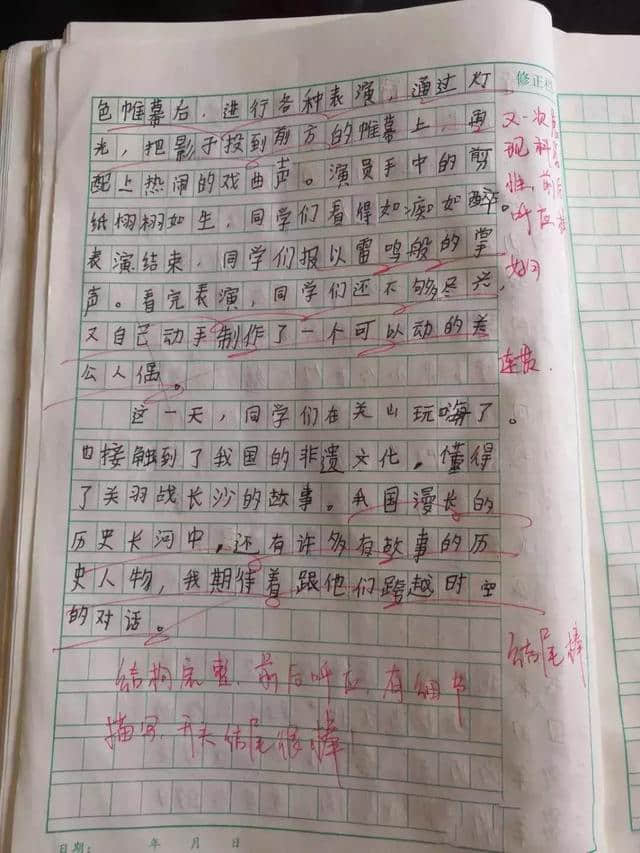 色帷幕后，进行各种表演，通过灯
光，把影子投到前方的帷幕上，再
配上热闹的戏曲声。演员手中的剪
纸栩栩如生，同学们看得如痴如醉。
表演结束，同学们报以雷鸣般的掌
声。看完表演，同学们还不够尽兴，
又自己动手制作了一个可以动的关
公人偶。
这一天，同学们在关山玩嗨了。
也接触到了我国的非遗文化，懂得
了关羽战长沙的故事。我国漫长的
历史长河中，还有许多有故事的历
史人物，我期待着跟他们跨越时空
的对话。
修正栏
又一次
现
性，前后
呼应
结尾棒
结构完整，前后呼应，有细节
描写，开头结尾很棒！
日期：　年　月　日